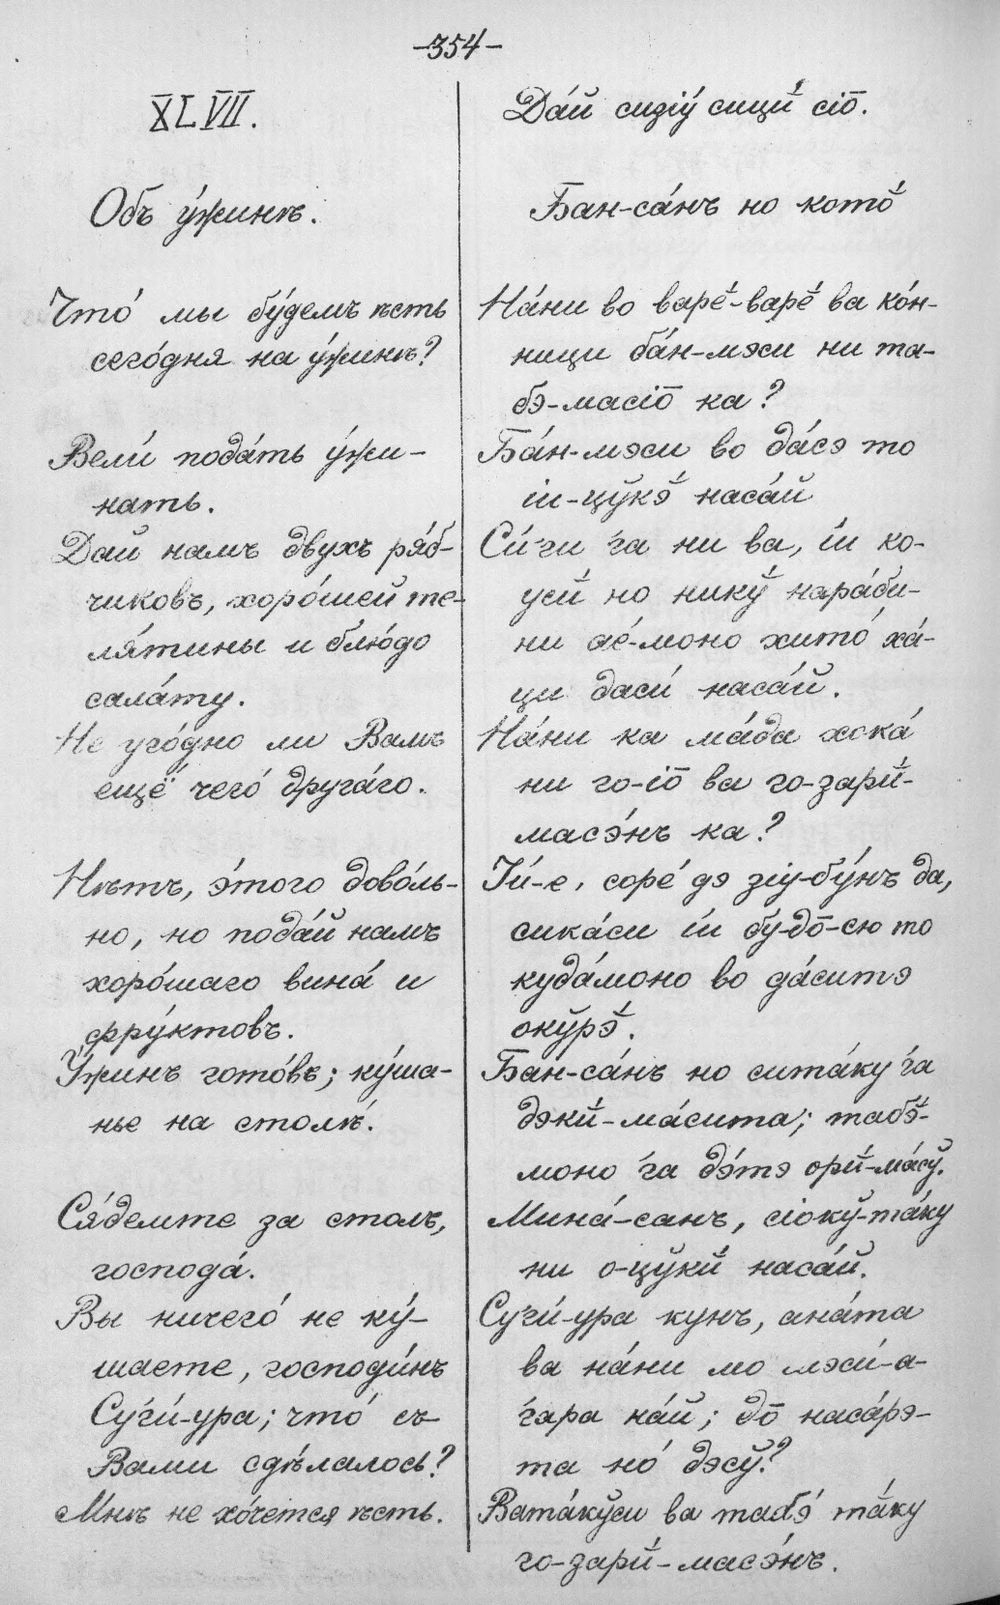 -354-
XLVII.
Объ у́жинѣ.
Что́ мы бу́демъ ѣсть
сего́дня на у́жинѣ?
Вели́ пода́ть у́жи-
нать.
Дай намъ двухъ ря́б-
чиковъ, хоро́шей те-
ля́тины и блю́до
сала́ту.
Не уго́дно ли Вамъ
ещё чего́ друга́го.
Нѣтъ, э́того дово́ль-
но, но пода́й намъ
хоро́шаго вина́ и
фру́ктовъ.
У́жинъ гото́въ; ку́ша-
нье на столѣ́.
Ся́демте за столъ,
господа́.
Вы ничего́ не ку́-
шаете, господи́нъ
Суги́-ура; что́ съ
Вами сдѣ́лалось?
Мнѣ не хо́чется ѣсть.
Да́й сизіу́ сици́ сіо̄.
Бан-са́нъ но кото́
На́ни во варе́-варе́ ва ко́н-
ници ба́н-мэси ни та-
бэ-масіо̄ ка?
Ба́н-мэси во да́сэ то
іи-цӯкэ́ наса́й
Си́ги га ни ва, і́и ко-
уси́ но нику́ нара́би-
ни ае́-моно хито́ ха́-
ци даси́ наса́й.
На́ни ка ма́да хока́
ни го-іо̄ ва го-зари́-
масэ́нъ ка?
Іи́-е, соре́ дэ зіу-бу́нъ да,
сика́си і́и бу́-до̄-сю то
куда́моно во да́ситэ
окӯрэ́.
Бан-са́нъ но сита́ку га
дэки́-ма́сита; табэ́-
моно га дэ́тэ ори́-ма́сў.
Мина́-санъ, сіокў-та́ку
ни о-цўки́ наса́й.
Суги́-ура кунъ, ана́та
ва на́ни мо мэси́-а-
гара на́й; до̄ наса́рэ-
та но́ дэсў?
Вата́кўси ва табэ́ та́ку
го-зари́-масэ́нъ.